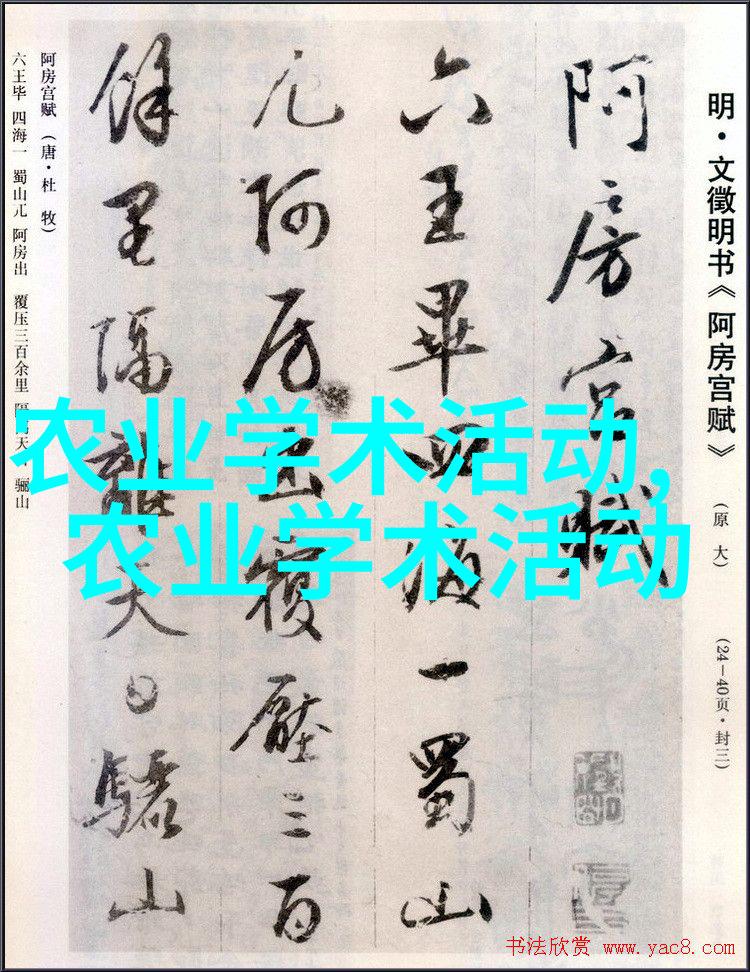 明·文徵明书《阿房宫赋》（原 大）（24—40页·封三）
阿房宫賦
六王畢四海一蜀山
兀阿房出覆壓三百
餘里隔離天日驪山
阿房宫赋（唐·杜 牧）
六王毕 四海一 蜀山兀 阿房出 覆压三百余里 天 骊山
农业学术活动,
农业学术活动
书法欣赏 www.yac8.com